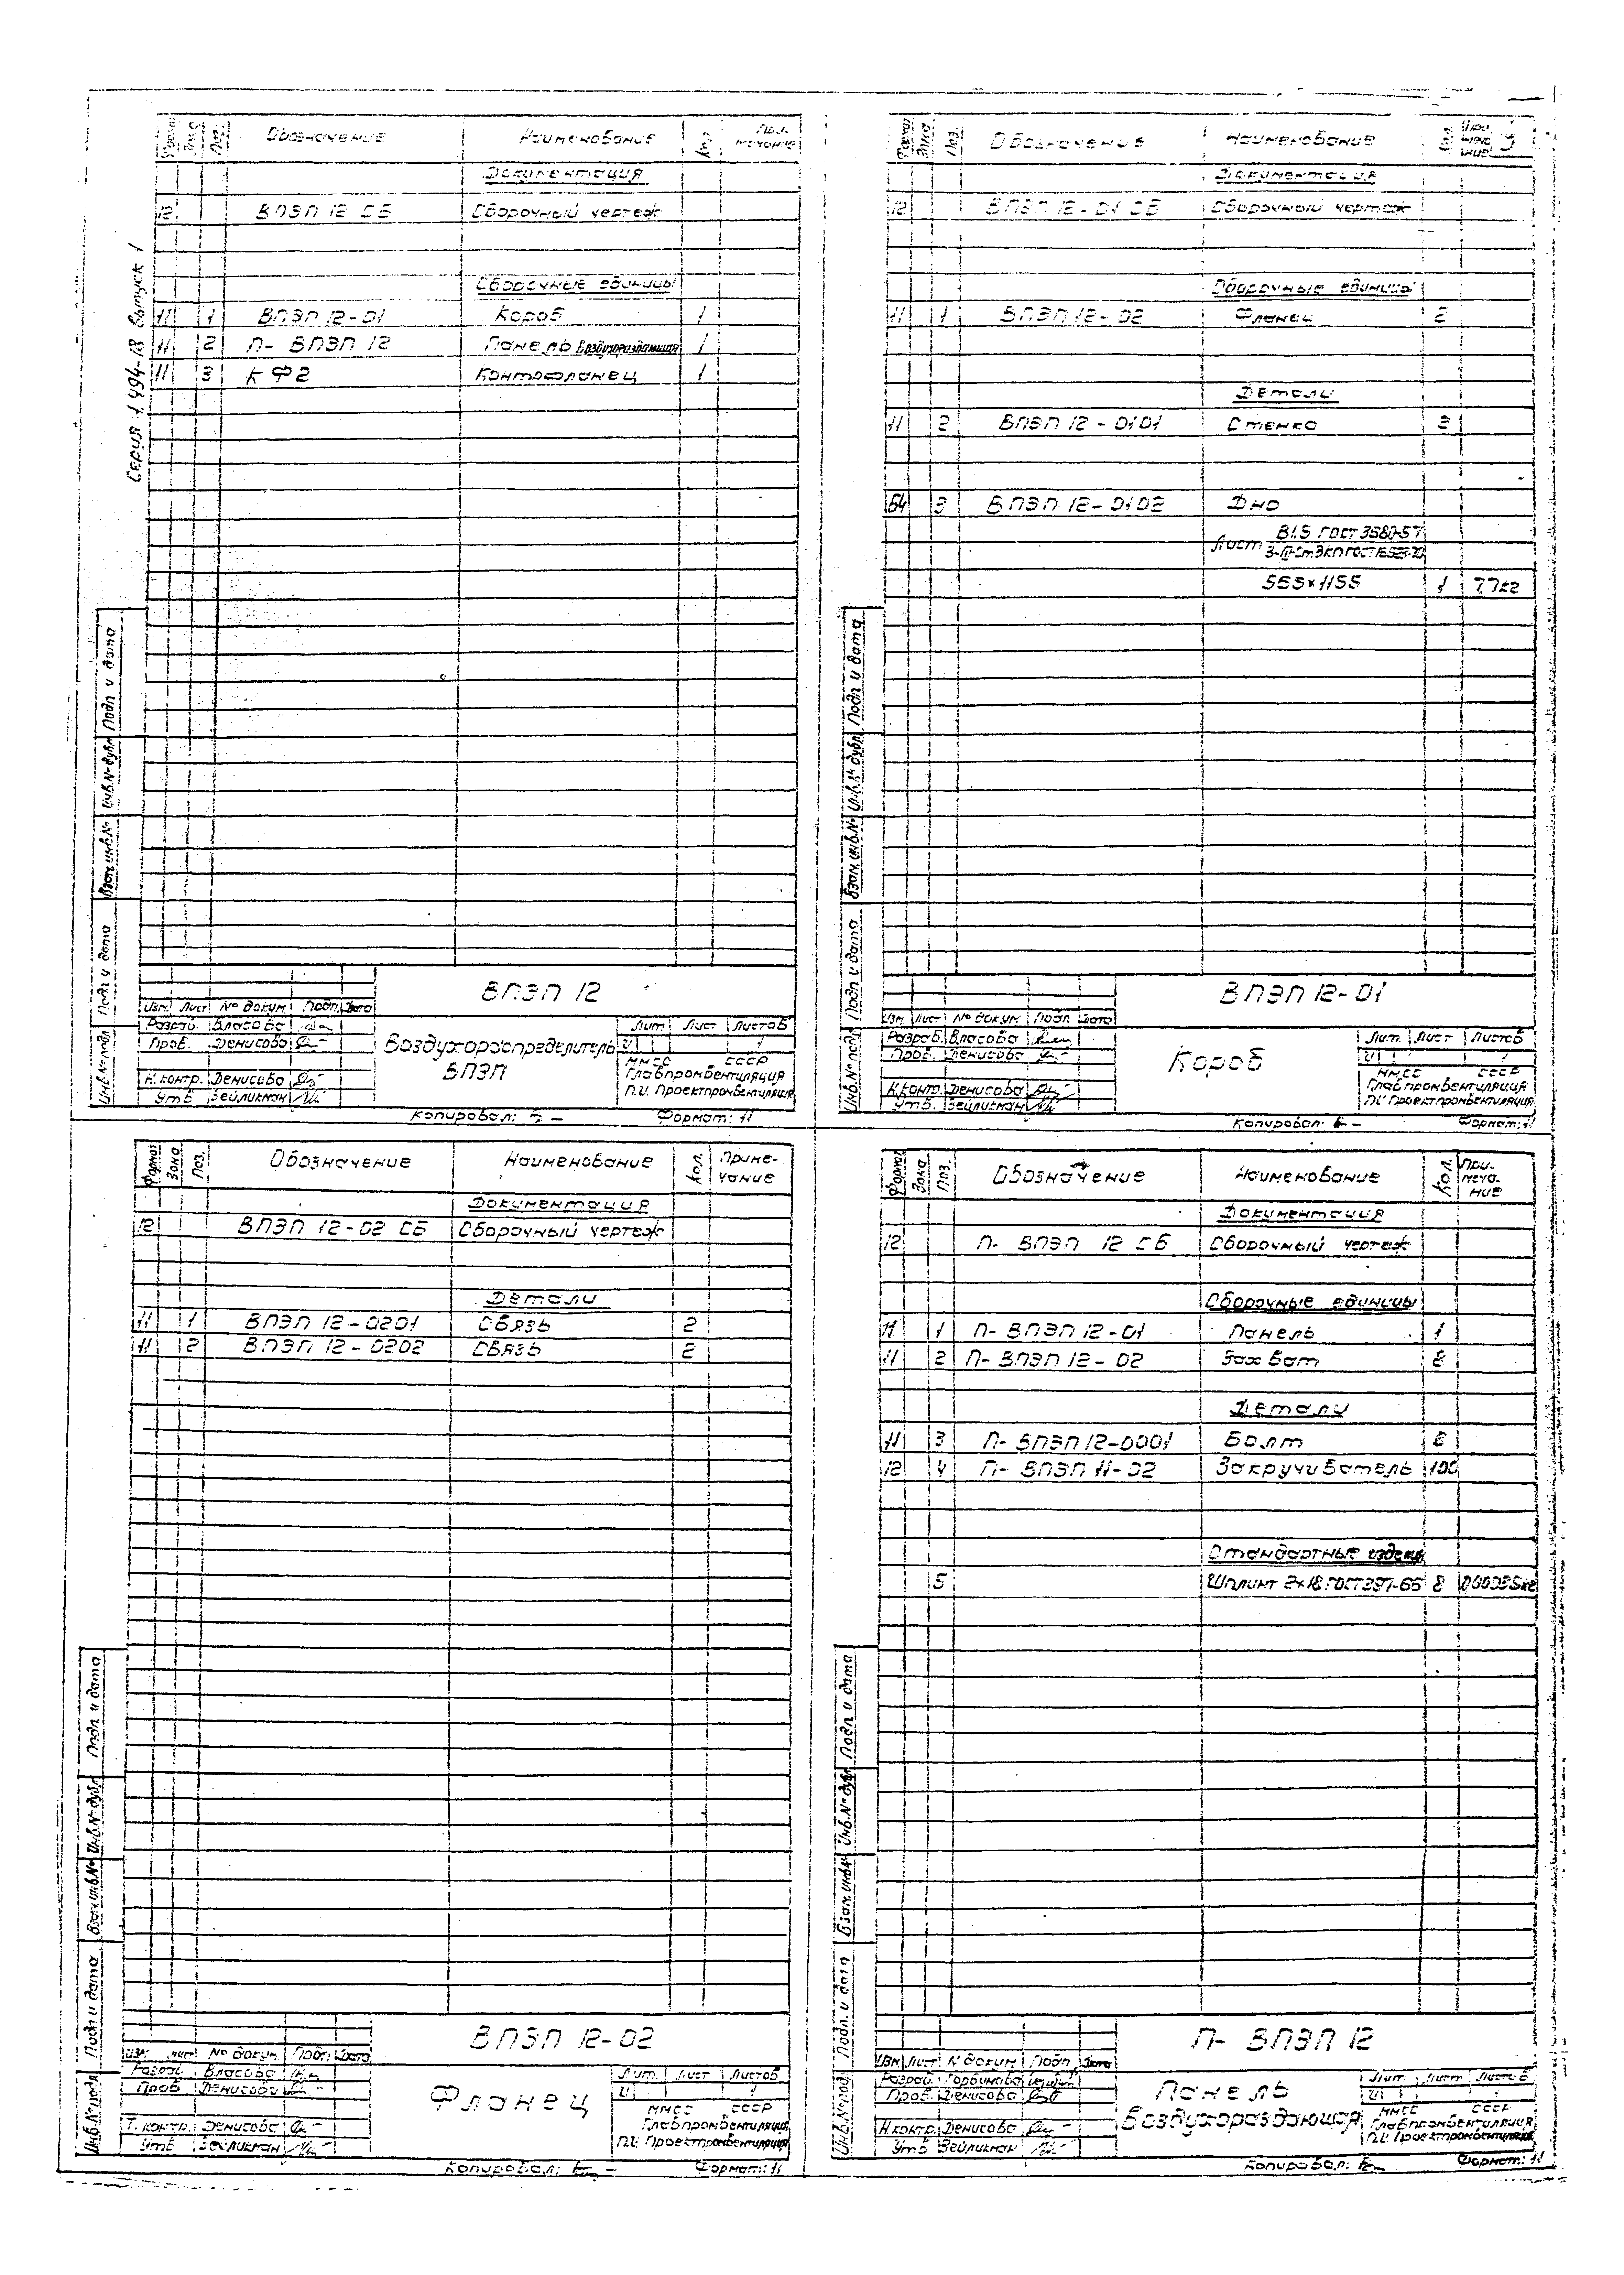 Серия 1.494-18 выпуск 1
Формат Зона Поз. Обозначение Наименование Кол. Примечание
Документация
12 ВПЭП 12 СБ Сборочный чертеж
Сборочные единицы
11 1 ВПЭП 12-01 Короб 1
11 2 П- ВПЭП 12 Панель воздухораздающая 1
11 3 КФ2 Контрфланец 1
Подп. и дата
Инв.№ дубл.
Взам.инв.№
Подп. и дата
Инв.№ подл.
ВПЭП 12
Изм. Лист № докум. Подп. Дата
Разраб. Власова
Пров. Денисова
Н.контр. Денисова
Утв. Зейликман
Воздухораспределитель
ВПЭП
Лит. Лист Листов
И 1
ММСС СССР
Главпромвентиляция
П.И. Проектпромвентиляция
Копировал: Формат: 11
Формат Зона Поз. Обозначение Наименование Кол. Примечание 3
Документация
12 ВПЭП 12-01 СБ Сборочный чертеж
Сборочные единицы
11 1 ВПЭП 12-02 Фланец 2
Детали
11 2 ВПЭП 12-0101 Стенка 2
БЧ 3 ВПЭП 12-0102 Дно
Лист В1.5 ГОСТ 3680-57
565х1155 1 7.7кг
Подп. и дата
Инв.№ дубл.
Взам.инв.№
Подп. и дата
Инв.№ подл.
ВПЭП 12-01
Изм. Лист № докум. Подп. Дата
Разраб. Власова
Пров. Денисова
Н.контр. Денисова
Утв. Зейликман
Короб
Лит. Лист Листов
И 1
ММСС СССР
Главпромвентиляция
П.И. Проектпромвентиляция
Копировал: Формат: 11
Формат Зона Поз. Обозначение Наименование Кол. Примечание
Документация
12 ВПЭП 12-02 СБ Сборочный чертеж
Детали
11 1 ВПЭП 12-0201 Связь 2
11 2 ВПЭП 12-0202 Связь 2
Подп. и дата
Инв.№ дубл.
Взам.инв.№
Подп. и дата
Инв.№ подл.
ВПЭП 12-02
Изм. Лист № докум. Подп. Дата
Разраб. Власова
Пров. Денисова
Т.контр. Денисова
Утв. Зейликман
Фланец
Лит. Лист Листов
И 1
ММСС СССР
Главпромвентиляция
П.И. Проектпромвентиляция
Копировал: Формат: 11
Формат Зона Поз. Обозначение Наименование Кол. Примечание
Документация
12 П- ВПЭП 12 СБ Сборочный чертеж
Сборочные единицы
11 1 П- ВПЭП 12-01 Панель 1
11 2 П- ВПЭП 12-02 Захват 8
Детали
11 3 П- ВПЭП 12-0001 Болт 8
12 4 П- ВПЭП 11-02 Закручиватель 100
Стандартные изделия
5 Шплинт 2х18 ГОСТ 397-66 8
Подп. и дата
Инв.№ дубл.
Взам.инв.№
Подп. и дата
Инв.№ подл.
П- ВПЭП 12
Изм. Лист N докум. Подп. Дата
Разраб. Горбунова
Пров. Денисова
Н.контр. Денисова
Утв. Зейликман
Панель
воздухораздающая
Лит. Лист Листов
И 1
ММСС СССР
Главпромвентиляция
П.И. Проектпромвентиляция
Копировал: Формат: 11